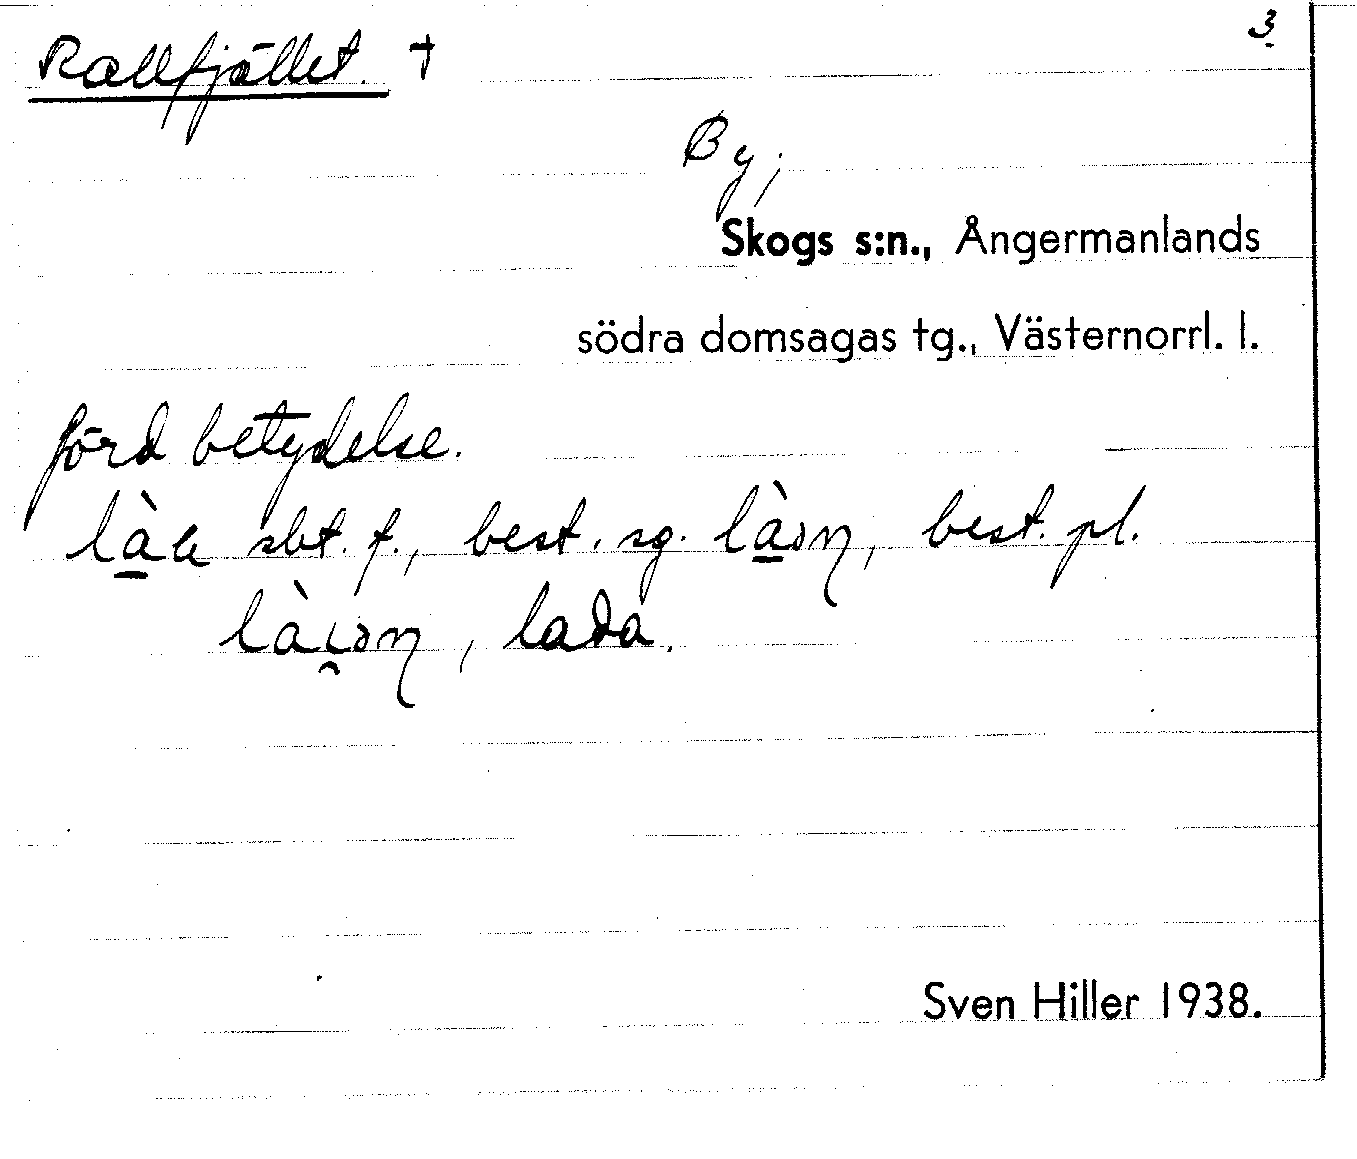 3
Rallfjället. †
By,
Skogs s:n., Ångermanlands
södra domsagas tg., Västernorrl. l.
förd betydelse.
sbt. f., best. sg. best. pl.
lada.
Sven Hiller 1938.